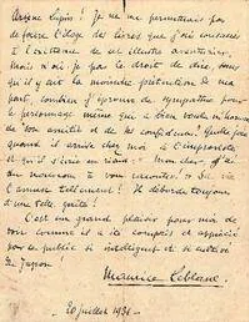 Arsène Lupin ! Je ne me permettrais pas
de faire l'éloge des livres que j'ai consacrés
à l'existence de cet illustre aventurier.
Mais n'ai-je pas le droit de dire, sans
qu'il y ait la moindre prétention de ma
part, combien j'éprouve de sympathie pour
le personnage même qui a bien voulu m'honorer
de son amitié et de ses confidences ! Quelle joie
quand il arrive chez moi à l'improviste
et qu'il s'écrie en riant : " Mon cher, j'ai
du nouveau à vous raconter ! " Sa vie
l'amuse tellement ! Il déborde toujours
d'une telle gaîté !
C'est un grand plaisir pour moi de
voir comme il a été compris et apprécié
par le public si intelligent et si cultivé
du Japon.
Maurice Leblanc.
20 juillet 1936